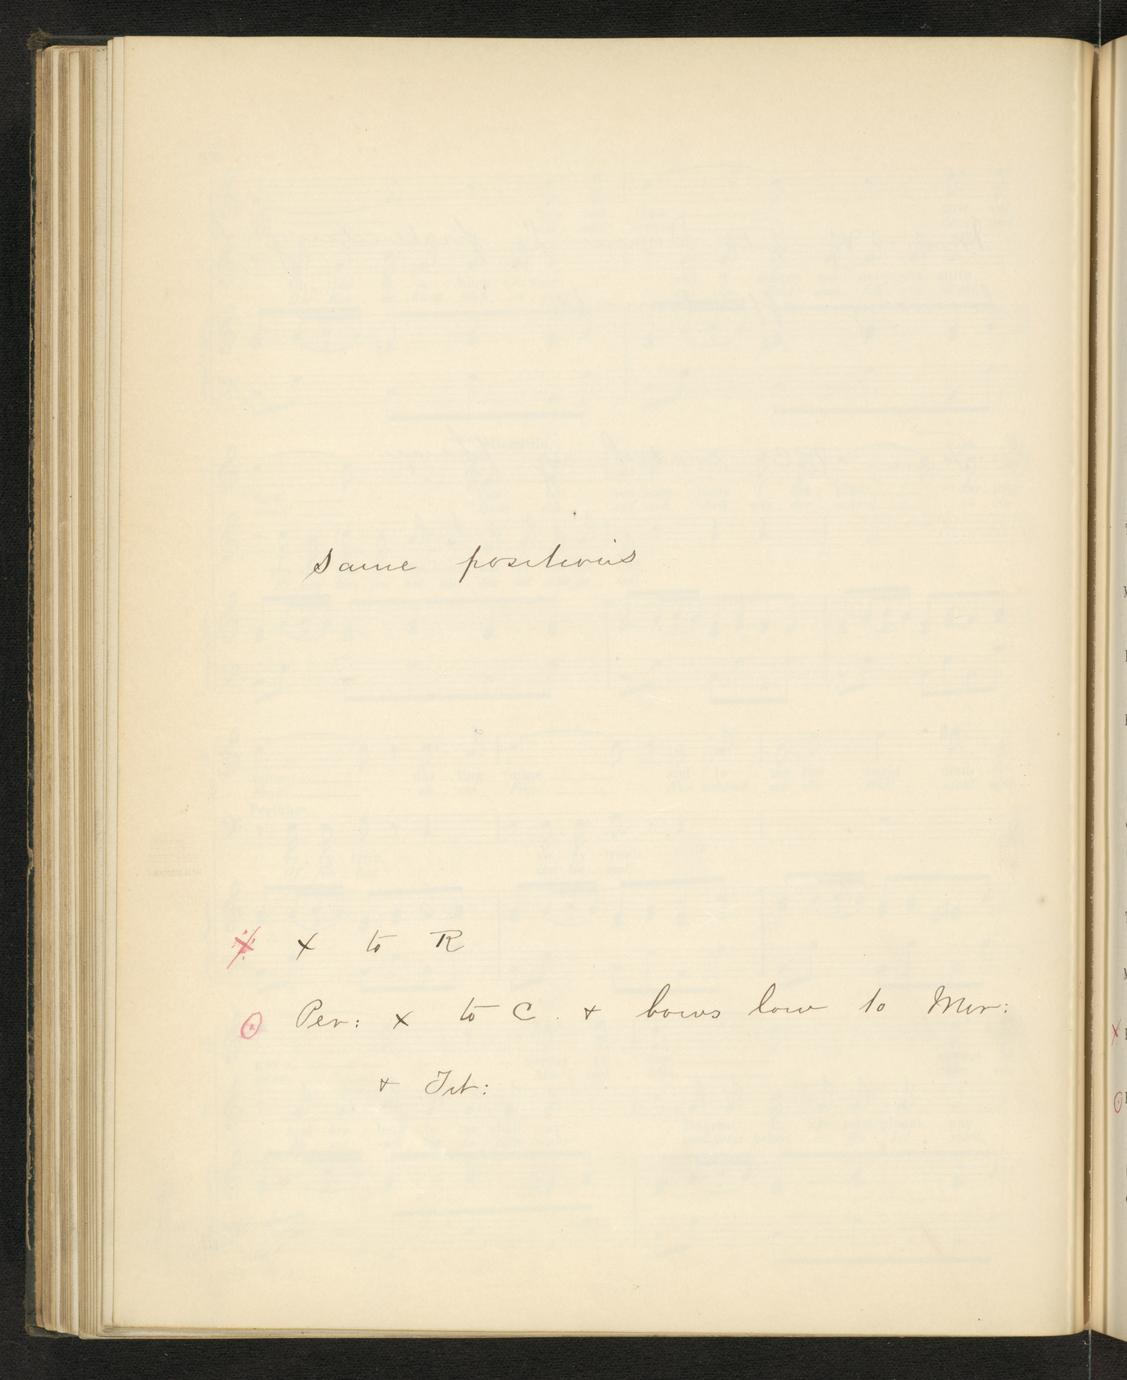 same positions
x x to R
Per: x to C. + bows low to Mer:
+ Tit: